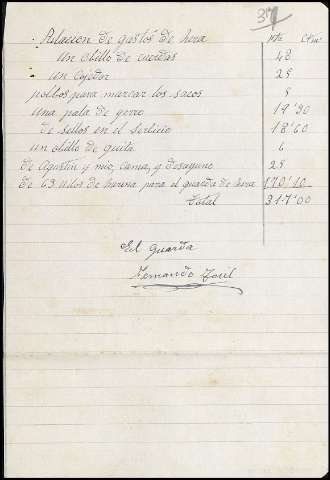 37
Relacion de gastos de hera pts Ctms
un obillo de cuerdas 48
un 25
polbos para marcar los sacos 5
una pala de yerro 17'30
de sellos en el serbicio 18'60
un obillo de guita 6
de Agustin y mio, cama, y desayuno 25
de 63 kilos de harina para el guarda de hera 170'10
Total 317'00
El guarda
Fernando Toril